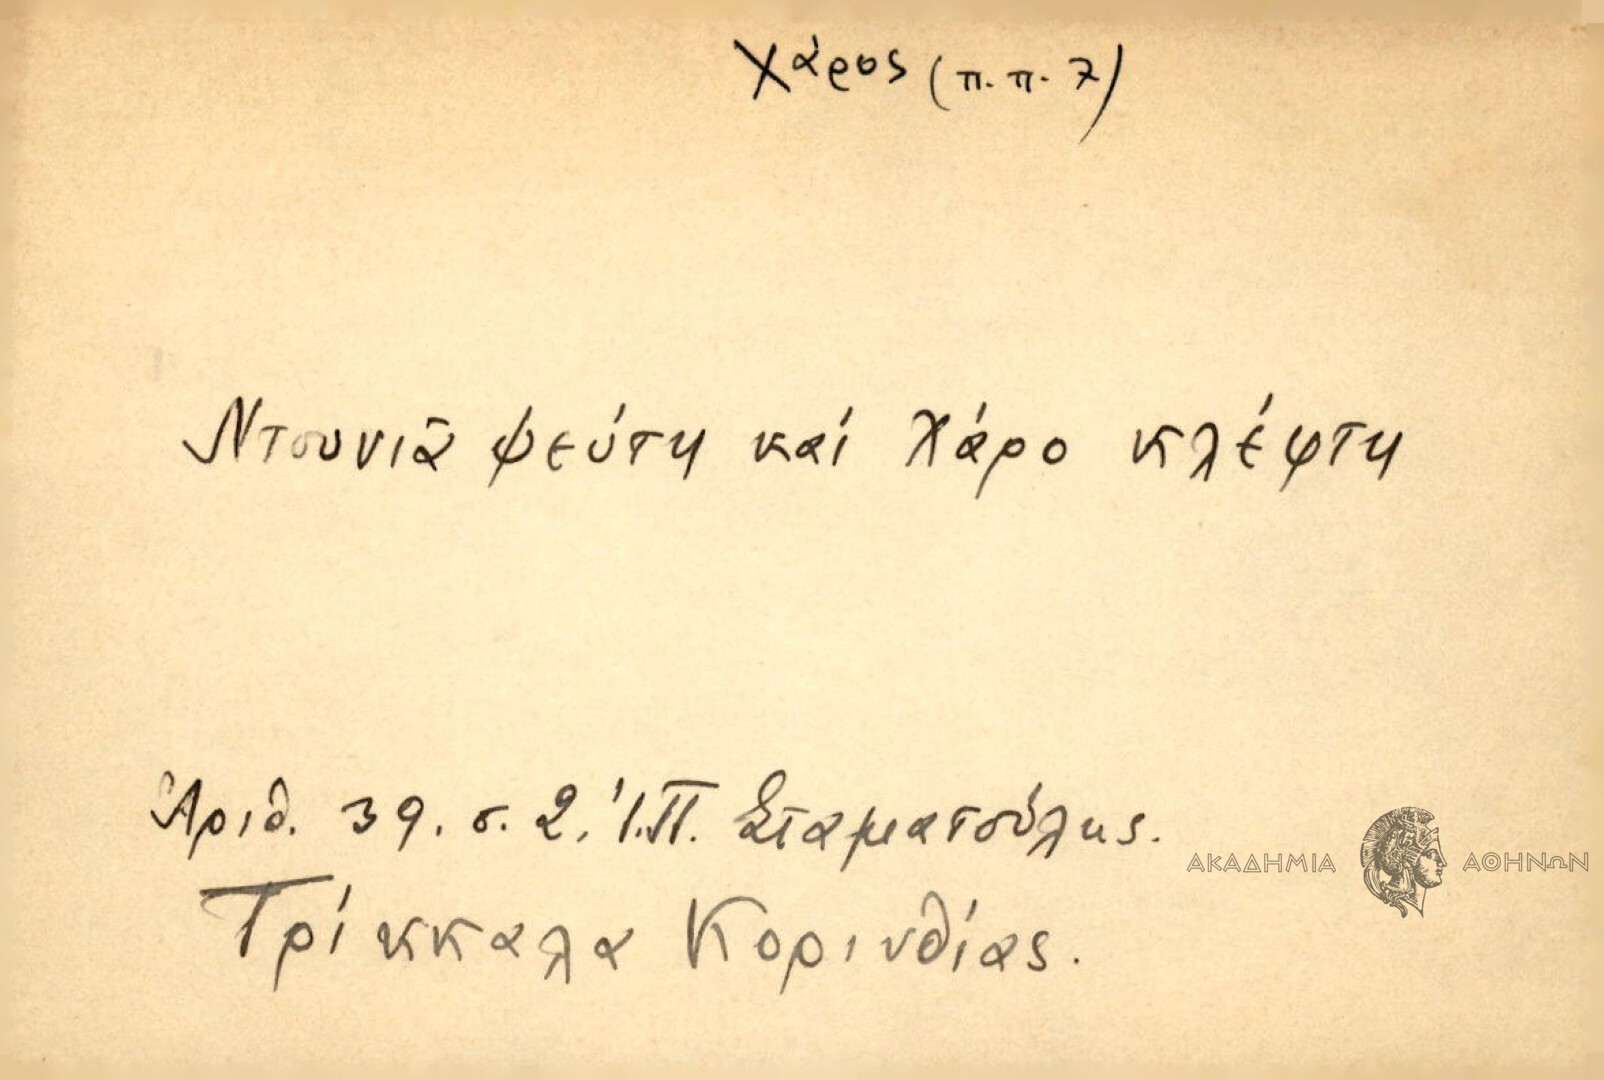 Χάρος (π.π. 7)
Ντουνιᾶ ψεύτη καί Χάρο κλέφτη
Ἀριθ. 39. σ. 2. Ἰ.Π. Σταματούλης.
Τρίκκαλα Κορινθίας.
ΑΚΑΔΗΜΙΑ ΑΘΗΝΩΝ